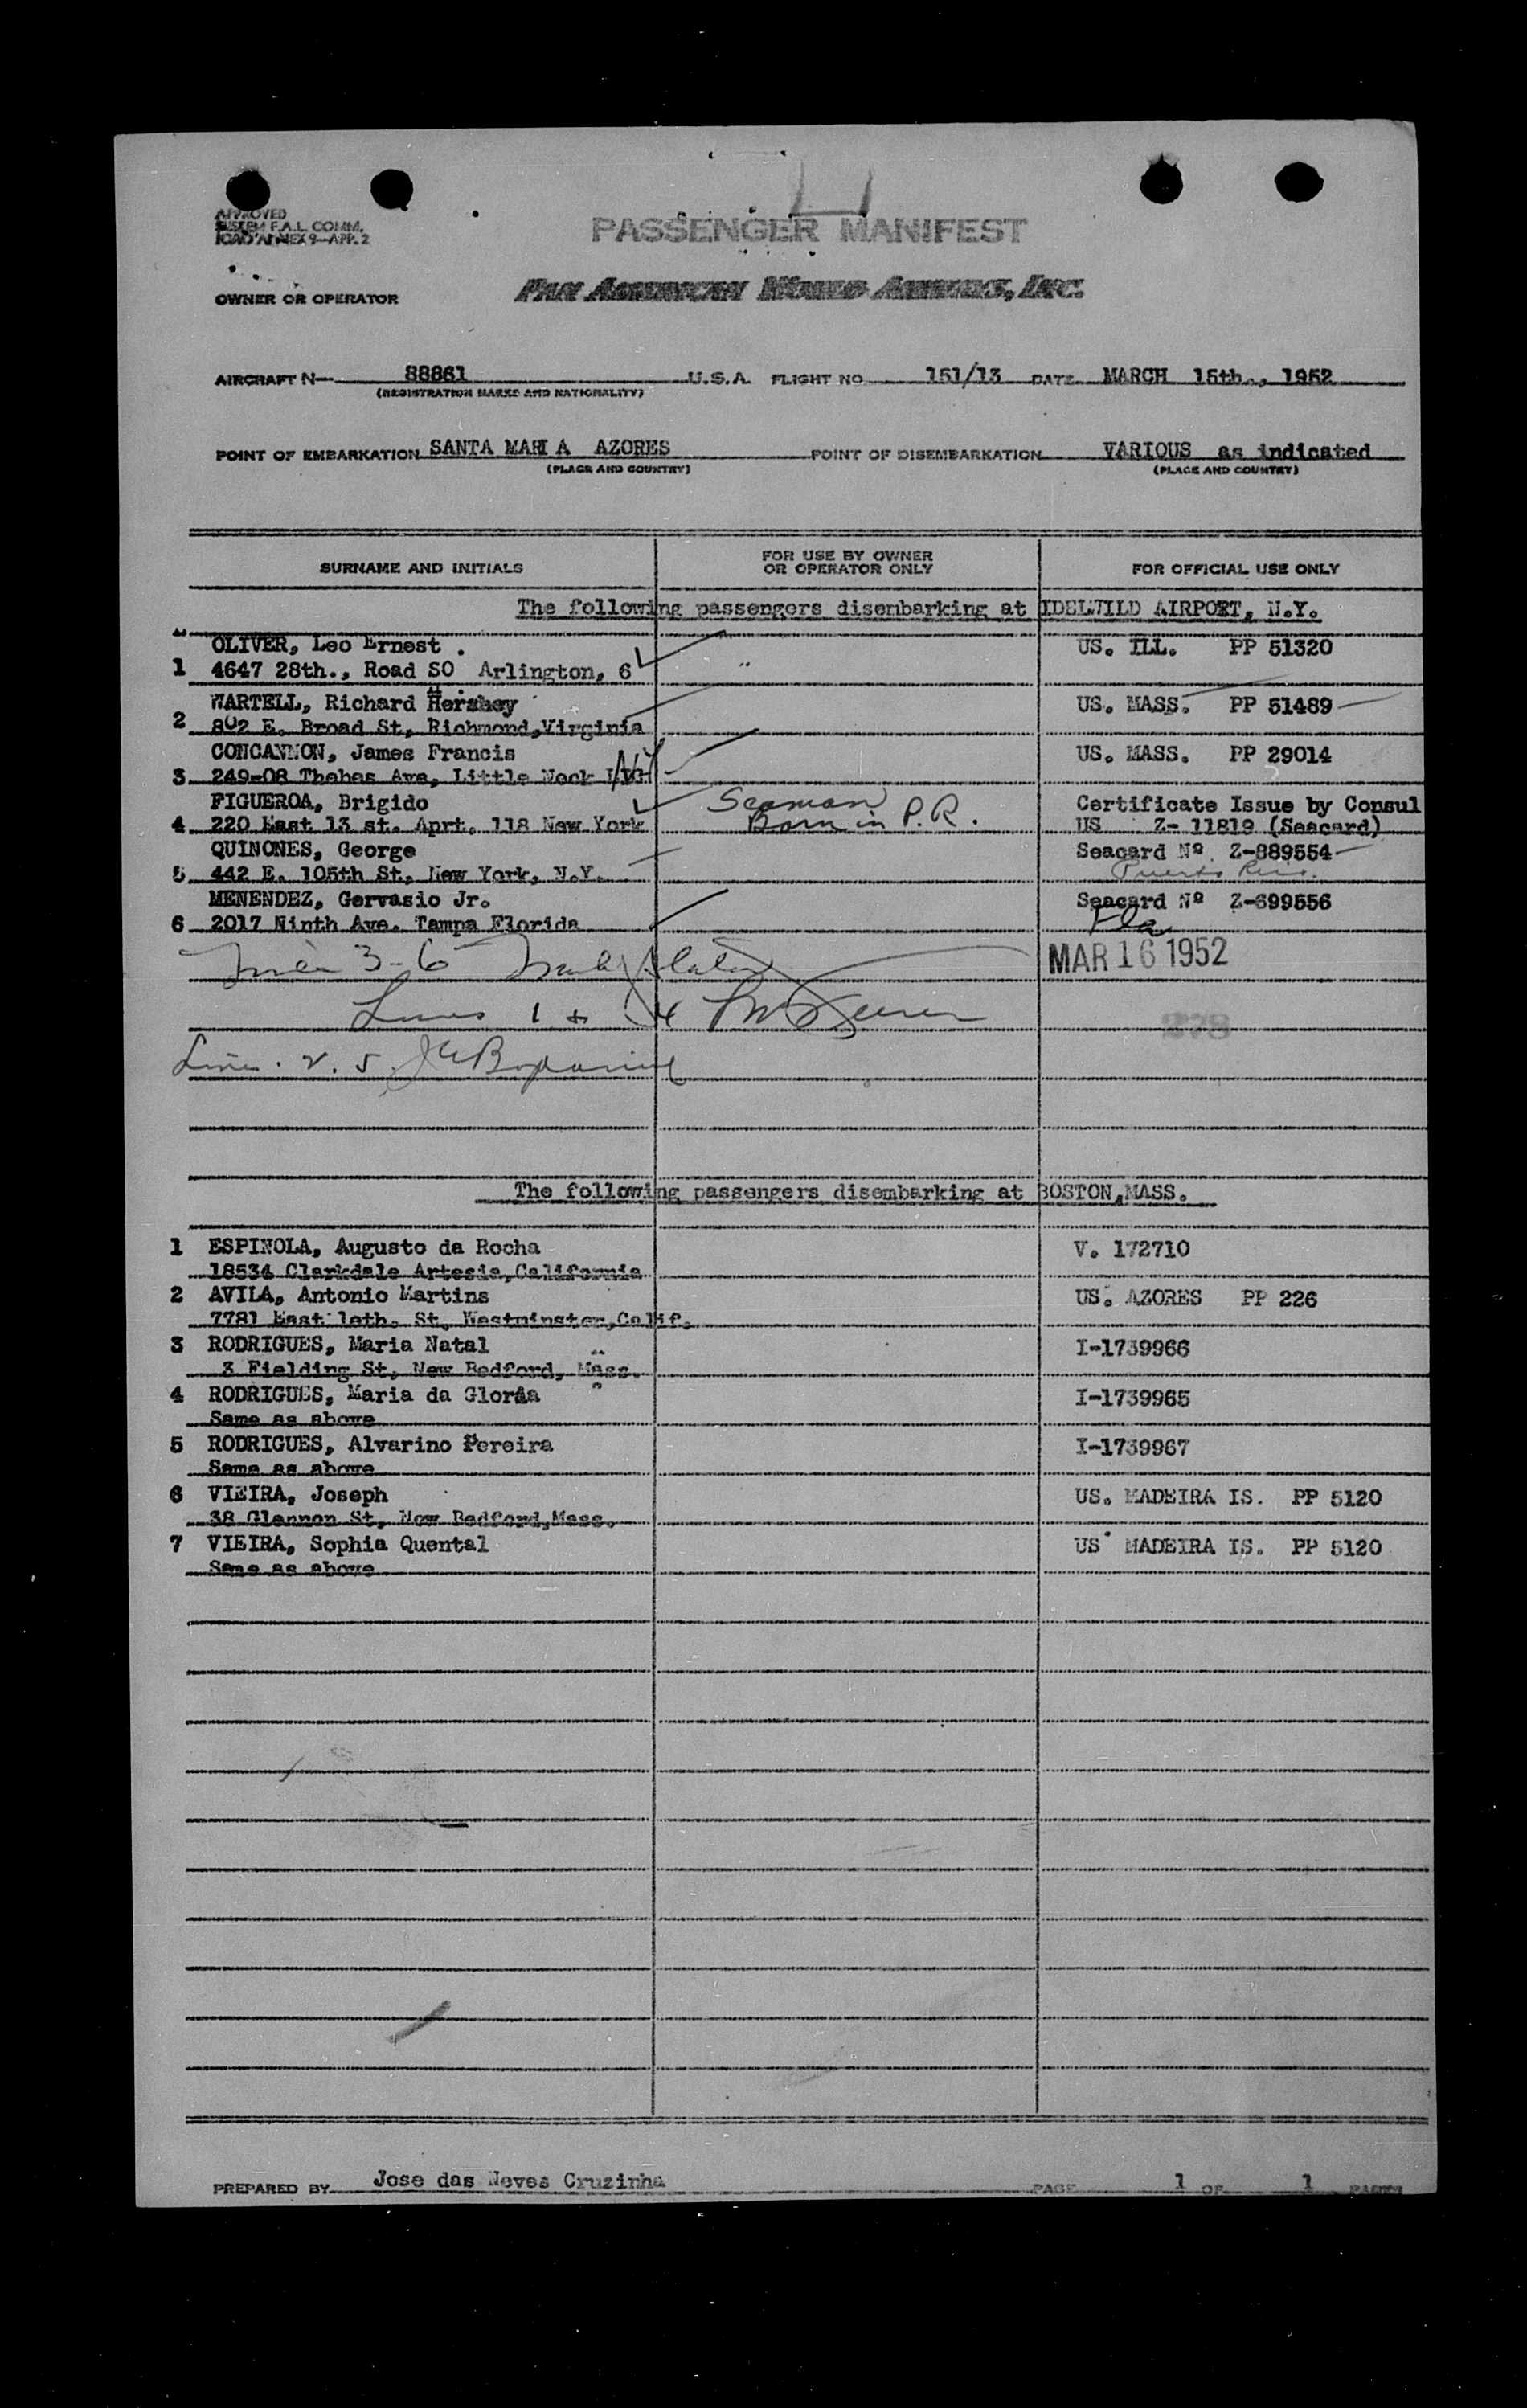 APPROVED
SYSTEM F.A.L. COMM.
ICAO ANNEX 9—APP. 2
PASSENGER MANIFEST
OWNER OR OPERATOR PAN AMERICAN WORLD AIRWAYS, INC.
AIRCRAFT N— 88861 U.S.A. FLIGHT NO. 151/13 DATE MARCH 15th., 1952
(REGISTRATION MARKS AND NATIONALITY)
POINT OF EMBARKATION SANTA MARIA AZORES POINT OF DISEMBARKATION VARIOUS as indicated
(PLACE AND COUNTRY) (PLACE AND COUNTRY)
SURNAME AND INITIALS FOR USE BY OWNER OR OPERATOR ONLY FOR OFFICIAL USE ONLY
The following passengers disembarking at IDELWILD AIRPORT, N.Y.
OLIVER, Leo Ernest . US. ILL. PP 51320
1 4647 28th., Road SO Arlington, 6
WARTELL, Richard Hershey US. MASS. PP 51489
2 802 E. Broad St, Richmond,Virginia
CONCANNON, James Francis US. MASS. PP 29014
3 249-08 Thebes Ave, Little Neck NY
FIGUEROA, Brigido Seaman Certificate Issue by Consul
4 220 East 13 st. Aprt. 118 New York Born in P.R. US Z- 11819 (Seacard)
QUINONES, George Seacard Nº Z-889554
5 442 E. 105th St, New York, N.Y. Puerto Rico.
MENENDEZ, Gervasio Jr. Seacard Nº Z-699556
6 2017 Ninth Ave. Tampa Florida Fla
3-6 MAR 16 1952
Lines 1 + 4
278
Lines . 2. 5
The following passengers disembarking at BOSTON,MASS.
1 ESPINOLA, Augusto da Rocha V. 172710
18534 Clarkdale Artesia,California
2 AVILA, Antonio Martins US. AZORES PP 226
7781 East 1eth. St, Westminster,Calif.
3 RODRIGUES, Maria Natal I-1739966
3 Fielding St, New Bedford, Mass.
4 RODRIGUES, Maria da Gloria I-1739965
Same as above
5 RODRIGUES, Alvarino Pereira I-1739967
Same as above
6 VIEIRA, Joseph US. MADEIRA IS. PP 5120
38 Glennon St, New Bedford,Mass.
7 VIEIRA, Sophia Quental US MADEIRA IS. PP 5120
Same as above
PREPARED BY Jose das Neves Cruzinha PAGE 1 OF 1 PAGES